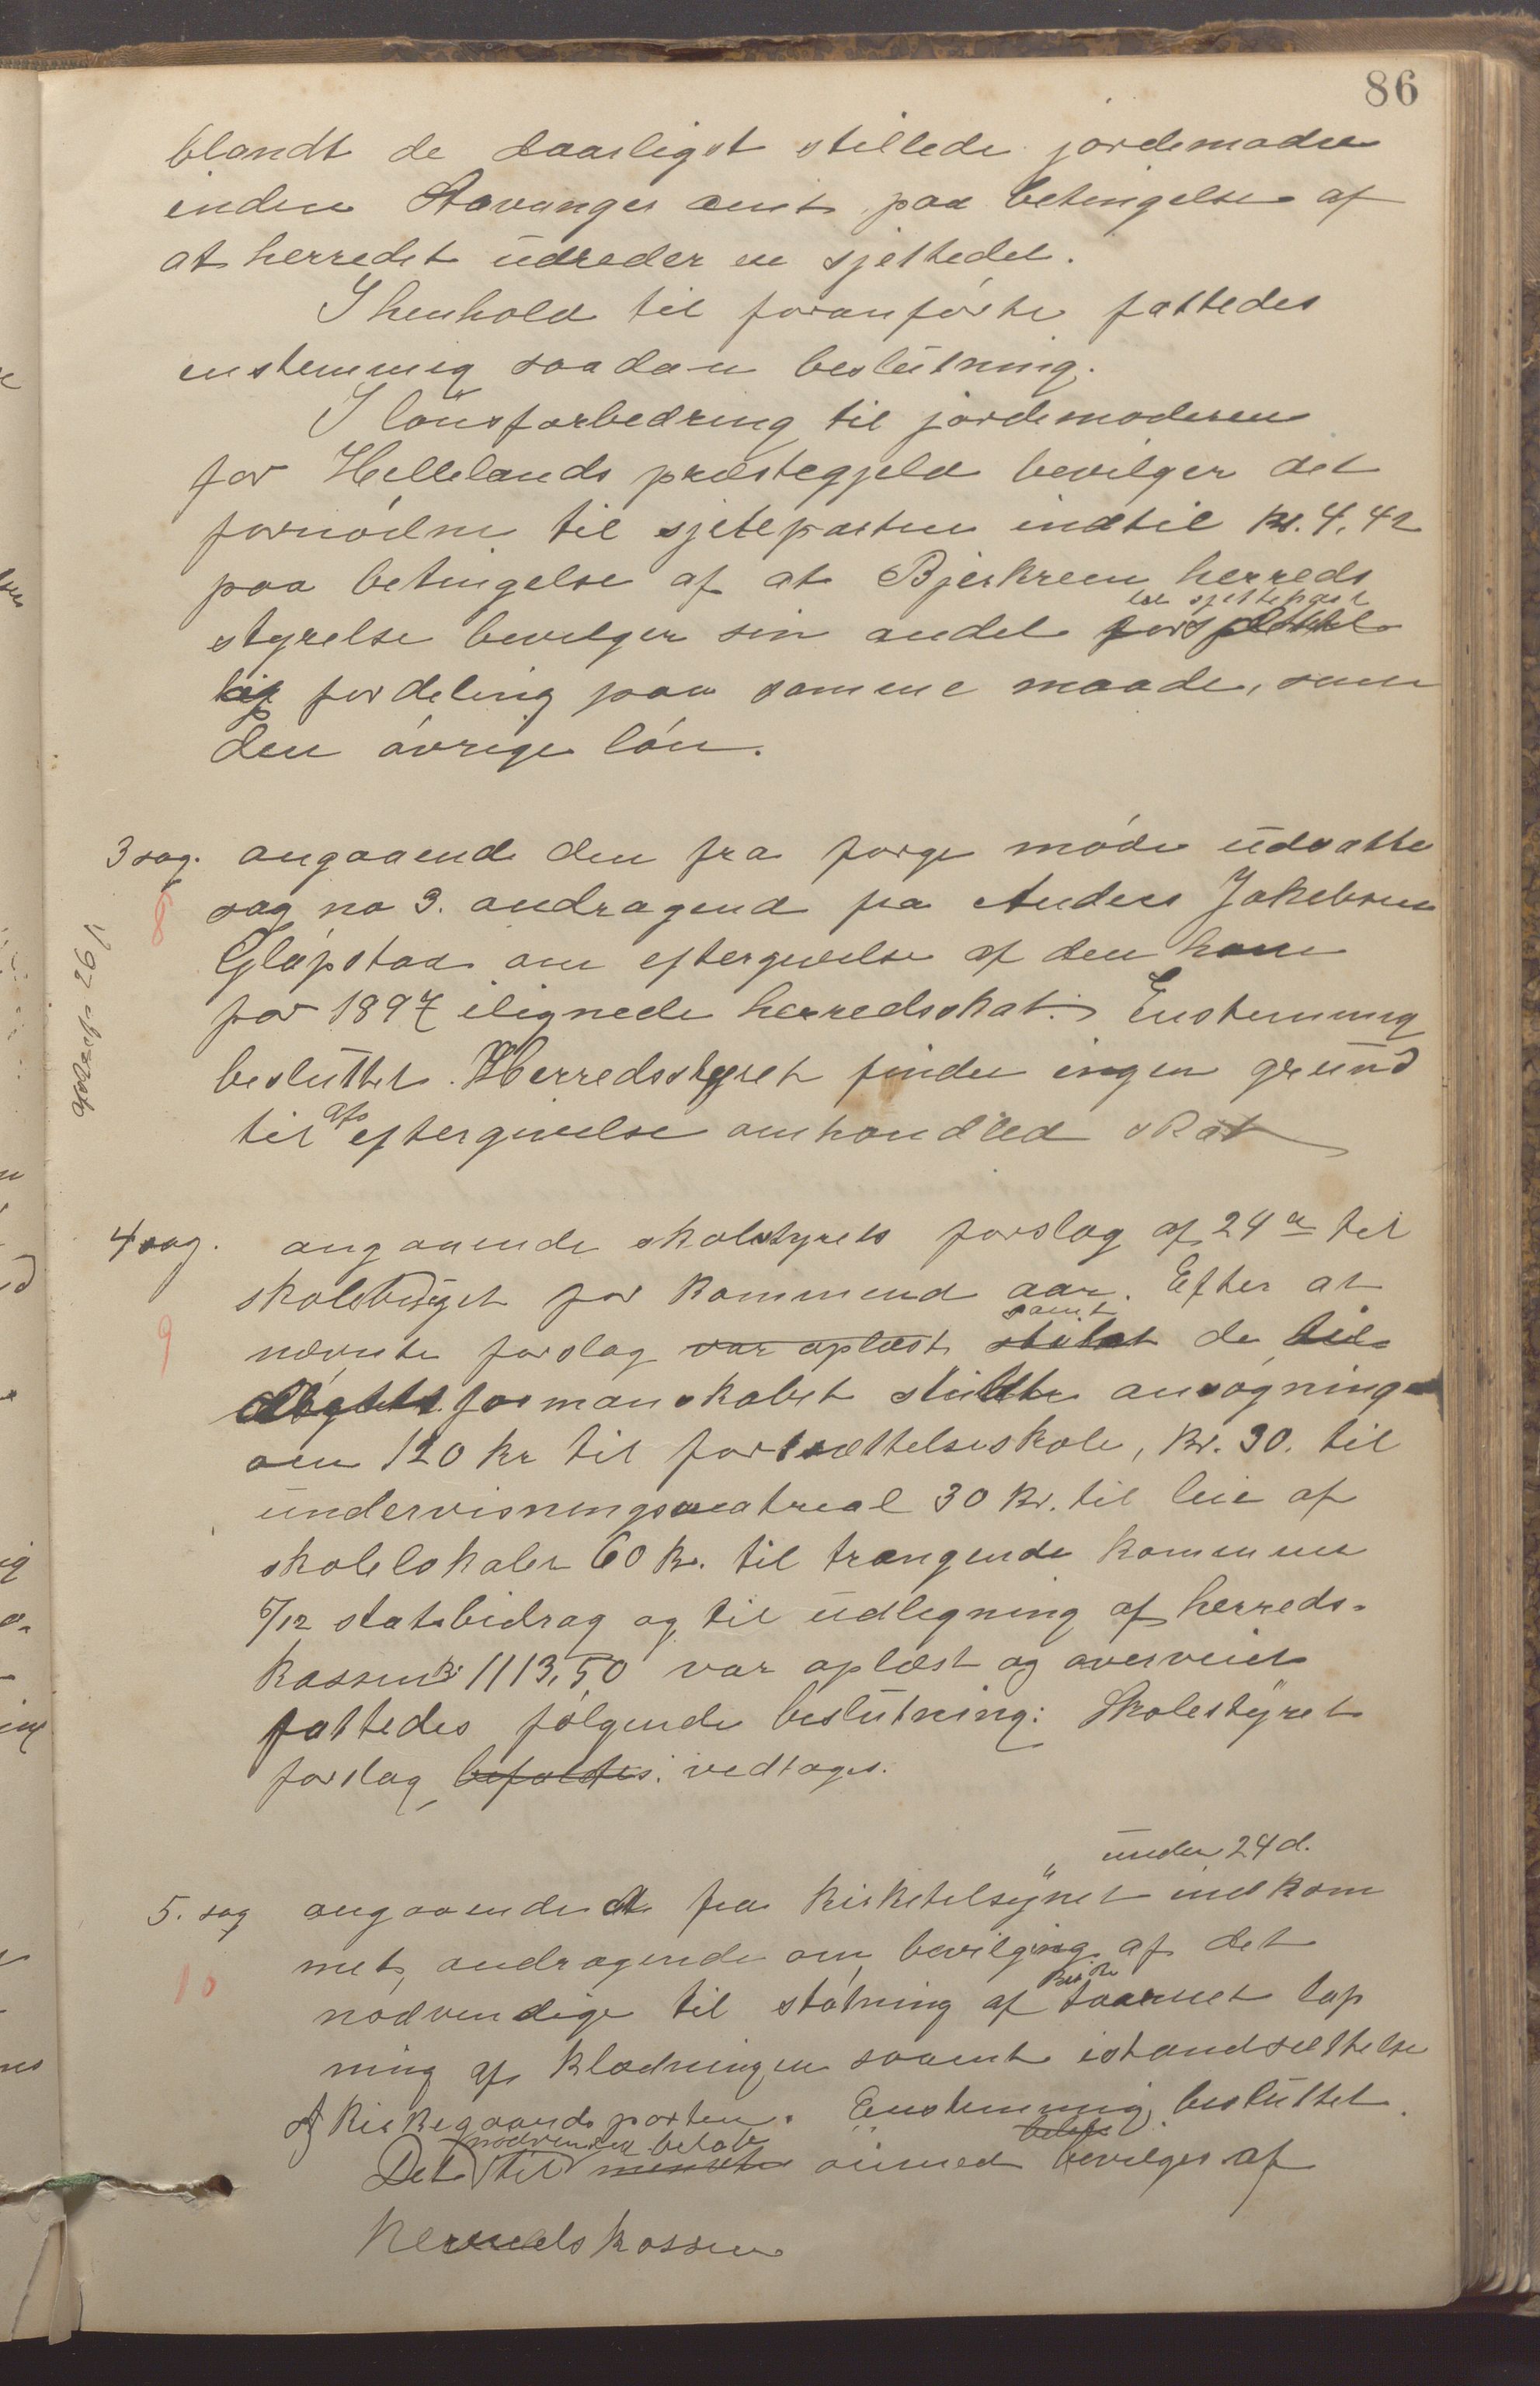 86
blandt de daarligst stillede jordemødre
inden Stavanger amt paa betingelse af
at herredet udreder en sjettedel.
I henhold til foranførte fattedes
enstemmig saadan beslutning.
I lønsforbedring til jordemoderen
for Hellelands præstegjeld bevilger det
fornødne til sjetteparten indtil kr. 4,42
paa betingelse af at Bjerkreim herreds
en sjettepart
styrelse bevilger sin andel
lig fordeling paa samme maade, som
den øvrige løn.
3 sag. angaaende den fra forge møde udsatte
8
sag no 3. andragend fra Anders Jakobsen
Gläpstad om eftergivelse af den ham
for 1897 ilignede herredsskat. Enstemmig
besluttet. Herredsstyret finder ingen grund
til at eftergivelse omhandled skat
afskrift 26/1
4 sag. angaaende skolestyrets forslag af 24 de til
skolebudget for kommend aar. Efter at
9
samt
nævnte forslag var oplæst de til
formanskabet stillede ansøgninger
om 120 kr til fortsættelseskole, kr. 30. til
undervisningsmatreal 30 kr. til leie af
skolelokaler 60 kr. til trængende kommune
5/12 statsbidrag og til udligning af herreds-
kassen kr 1113,50 var oplæst og overveiet
fattedes følgende beslutning: Skolestyret
forslag befaldtes: vedtages.
under 24 d.
5. sag angaaende et fra kirketilsynet indkom
met, andragende om bevilging af det
10
nødvendige til støtning af kirke taarnet tap
ning af klædningen saamt istandsættelse
af kirkegaardsporten. Enstemmig besluttet.
nødvendige beløb
Det til bevilges af
herredskassen